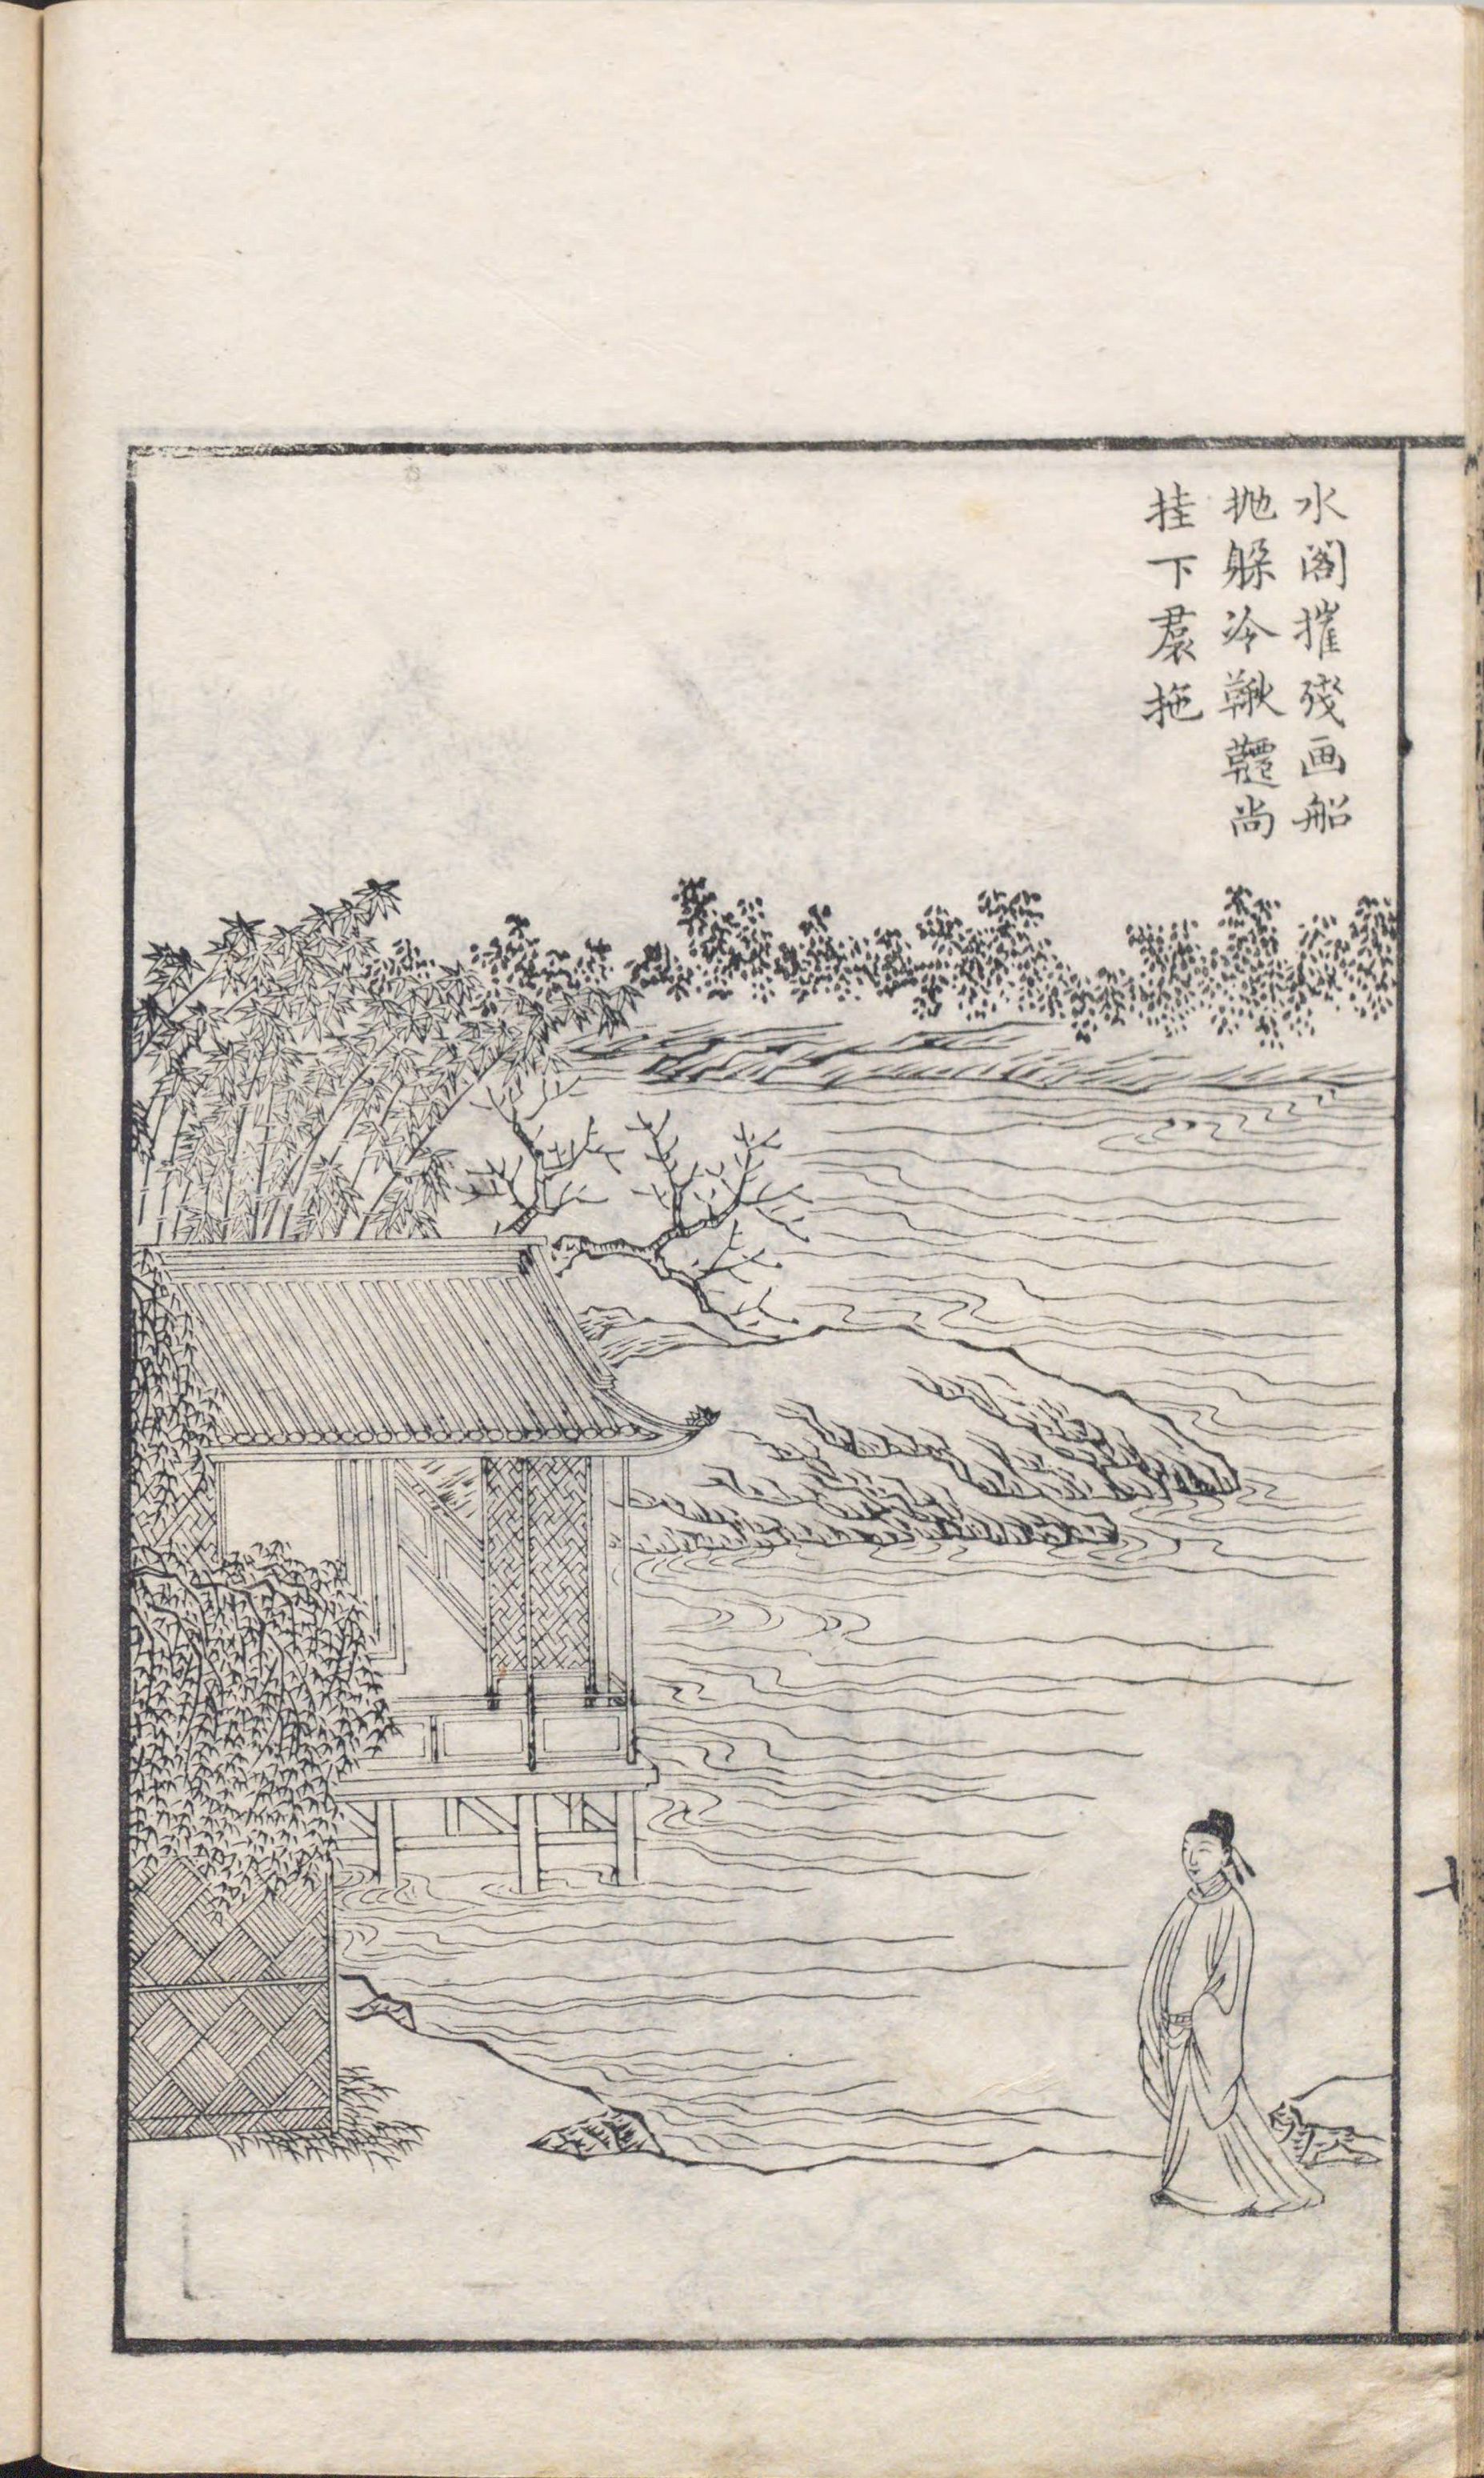 水阁摧残画船
抛躱冷鞦韆尚
挂下裠拖